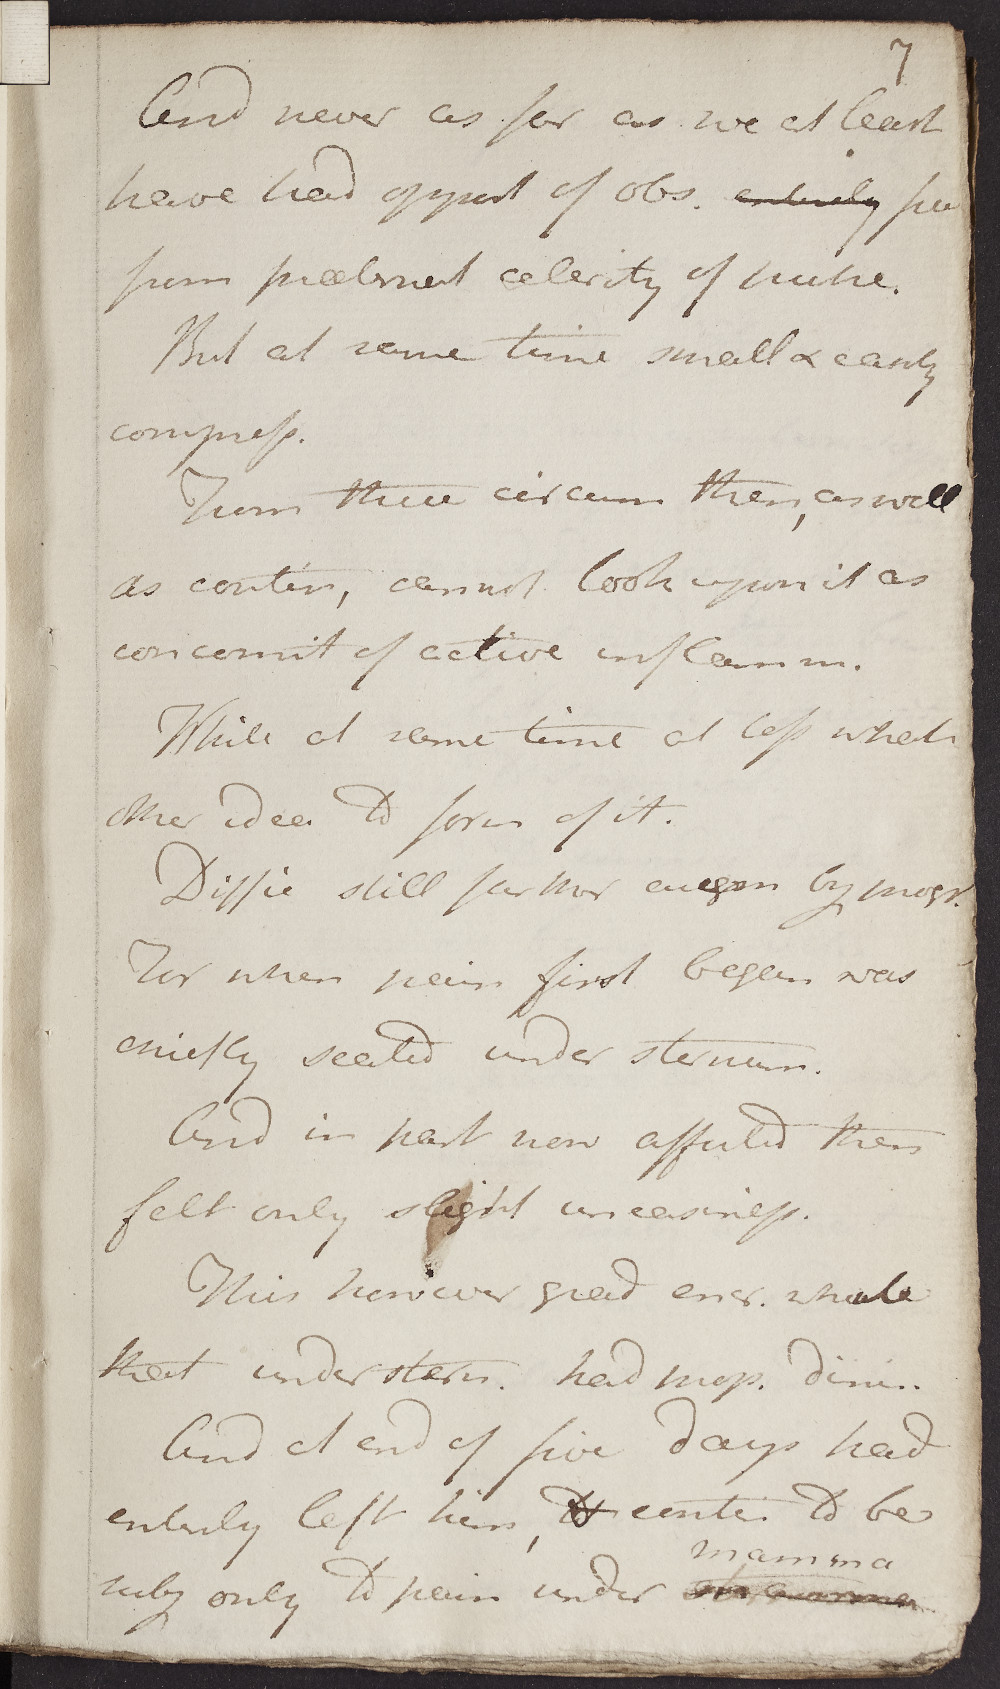 7
And never as far as we at least
have had opport of obs. entirely free
from præternat celerity of pulse.
But at same time small & easily
compress.
From these circum then, as well
as contin, cannot look upon it as
concomit of active inflamm.
While at same time at loss what
other idea to form of it.
Diffic still farther augm by progr.
For when pain first began was
chiefly seated under sternum.
And in part now affected then
felt only slight uneasiness.
This however grad encr. while
that under stern. had prop. dimin.
And at end of five days had
entirely left him, & contin to be
subj only to pain under
mamma